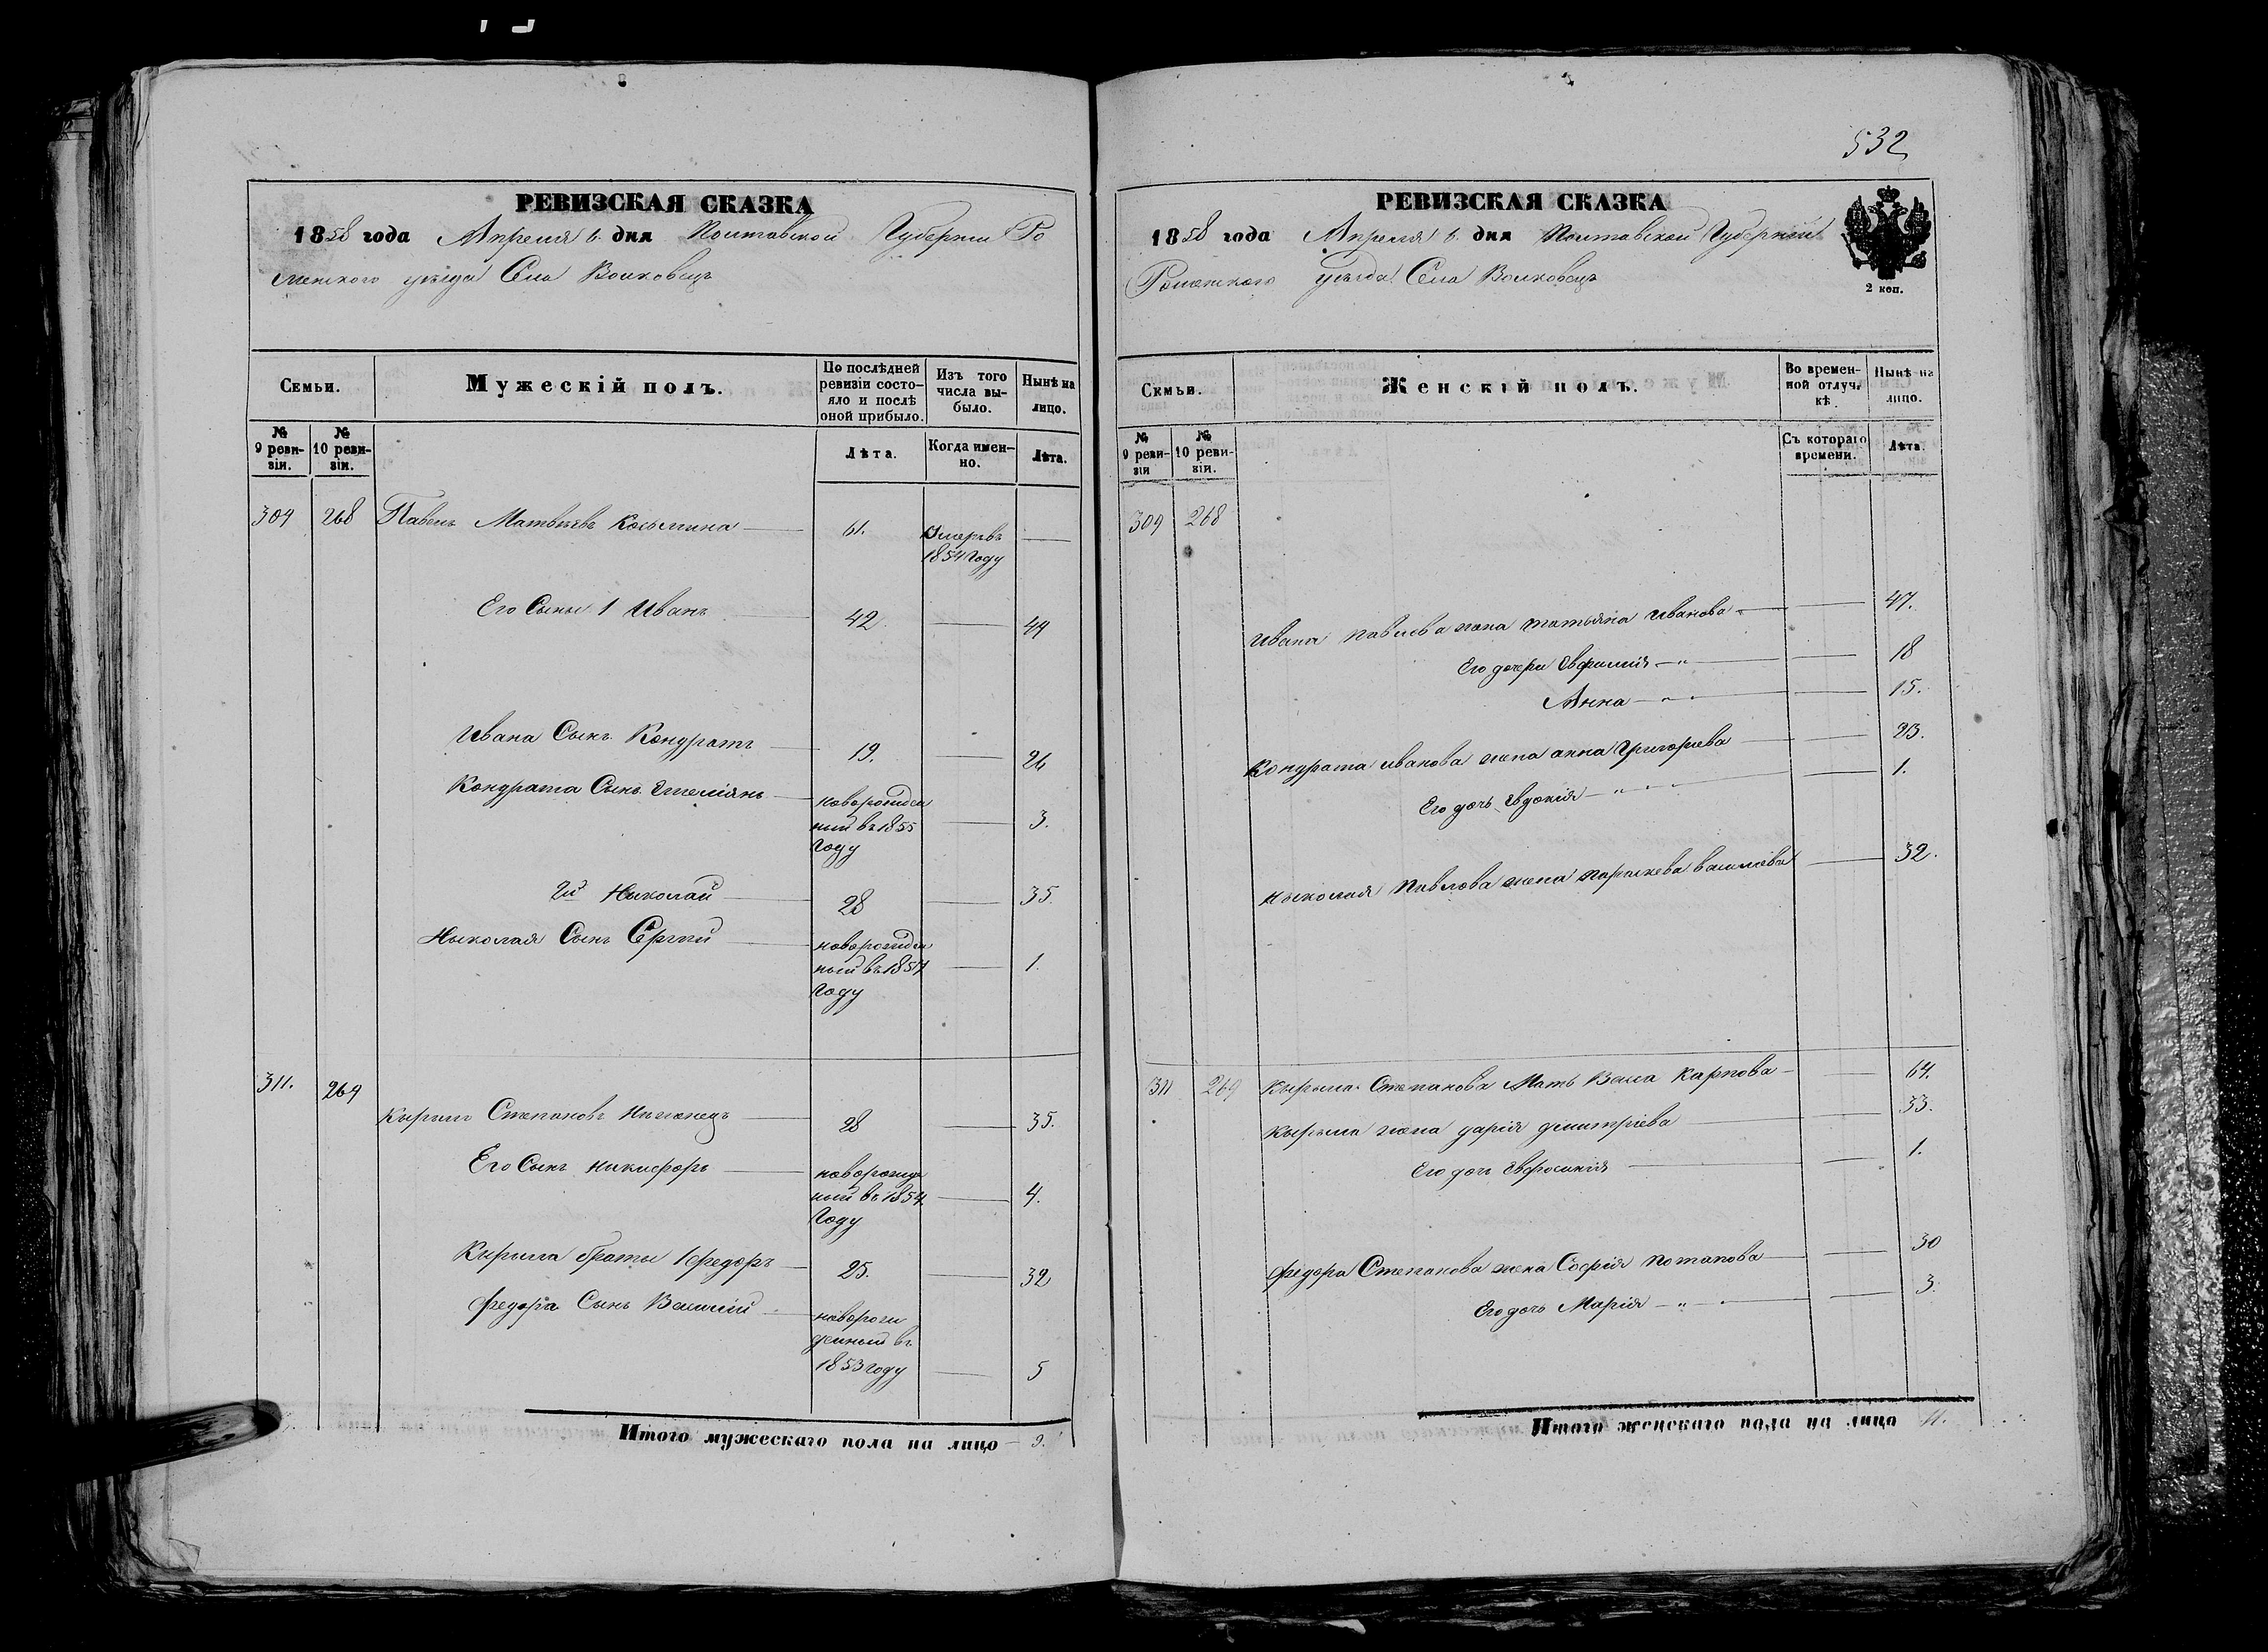 532
РЕВИЗСКАЯ СКАЗКА
1858 года Апреля 6. дня Полтавской Губернии Ро
менского уезда Села Волковец
Семьи.
Мужескій полъ.
По послѣдней ревизіи состо- яло и послѣ оной прибыло.
Изъ того числа вы- было.
Нынѣ на лицо.
№ 9 реви- зіи.
№ 10 реви- зіи.
Лѣта.
Когда имен- но.
Лѣта.
309 268 Павелъ Матвѣевъ 61. Умеръ въ
1854 году
Его Сыны 1 Иванъ 42. 49
Ивана Сынъ Кондратъ 19. 26
Кондрата Сынъ Емеліянъ новорожден
ный въ 1855 3.
году
2й Николай 28 35.
Николая Сынъ Сергий новорожден
ный въ 1857 1.
году
311. 269
Кырылъ Степановъ 28 35.
Его Сынъ никифоръ новорожд
ный въ 1854 4.
году
Кирила браты 1 федоръ 25. 32
федора Сынъ Василий новорож
денный въ
1853 году 5
Итого мужескаго пола на лицо 9.
РЕВИЗСКАЯ СКАЗКА
1858 года Апреля 6. дня Полтавской Губернии
Роменского уезда Села Волковец
2 коп.
Семьи.
Женскій полъ.
Во времен- ной отлуч- кѣ
Нынѣ на лицо.
№ 9 реви- зіи
№ 10 реви- зіи.
Съ котораго времени.
Лѣта.
309 268
Ивана павлова жена татьяна иванова 47.
Его дочери Евфимія 18
Анна 15.
Кондрата иванова жена анна Григорьева 23.
Его дочь Евдокія 1.
Николая Павлова жена параскева васильева 32.
311 269 Кырыла Степанова Мать Васса Карпова 64.
Кырыла жена дарія дмитріева 33.
Его дочь Евфросинія 1.
федора Степанова жена Софія потапова 30
Его дочь Марія 3.
Итого женскаго пола на лицо 11.